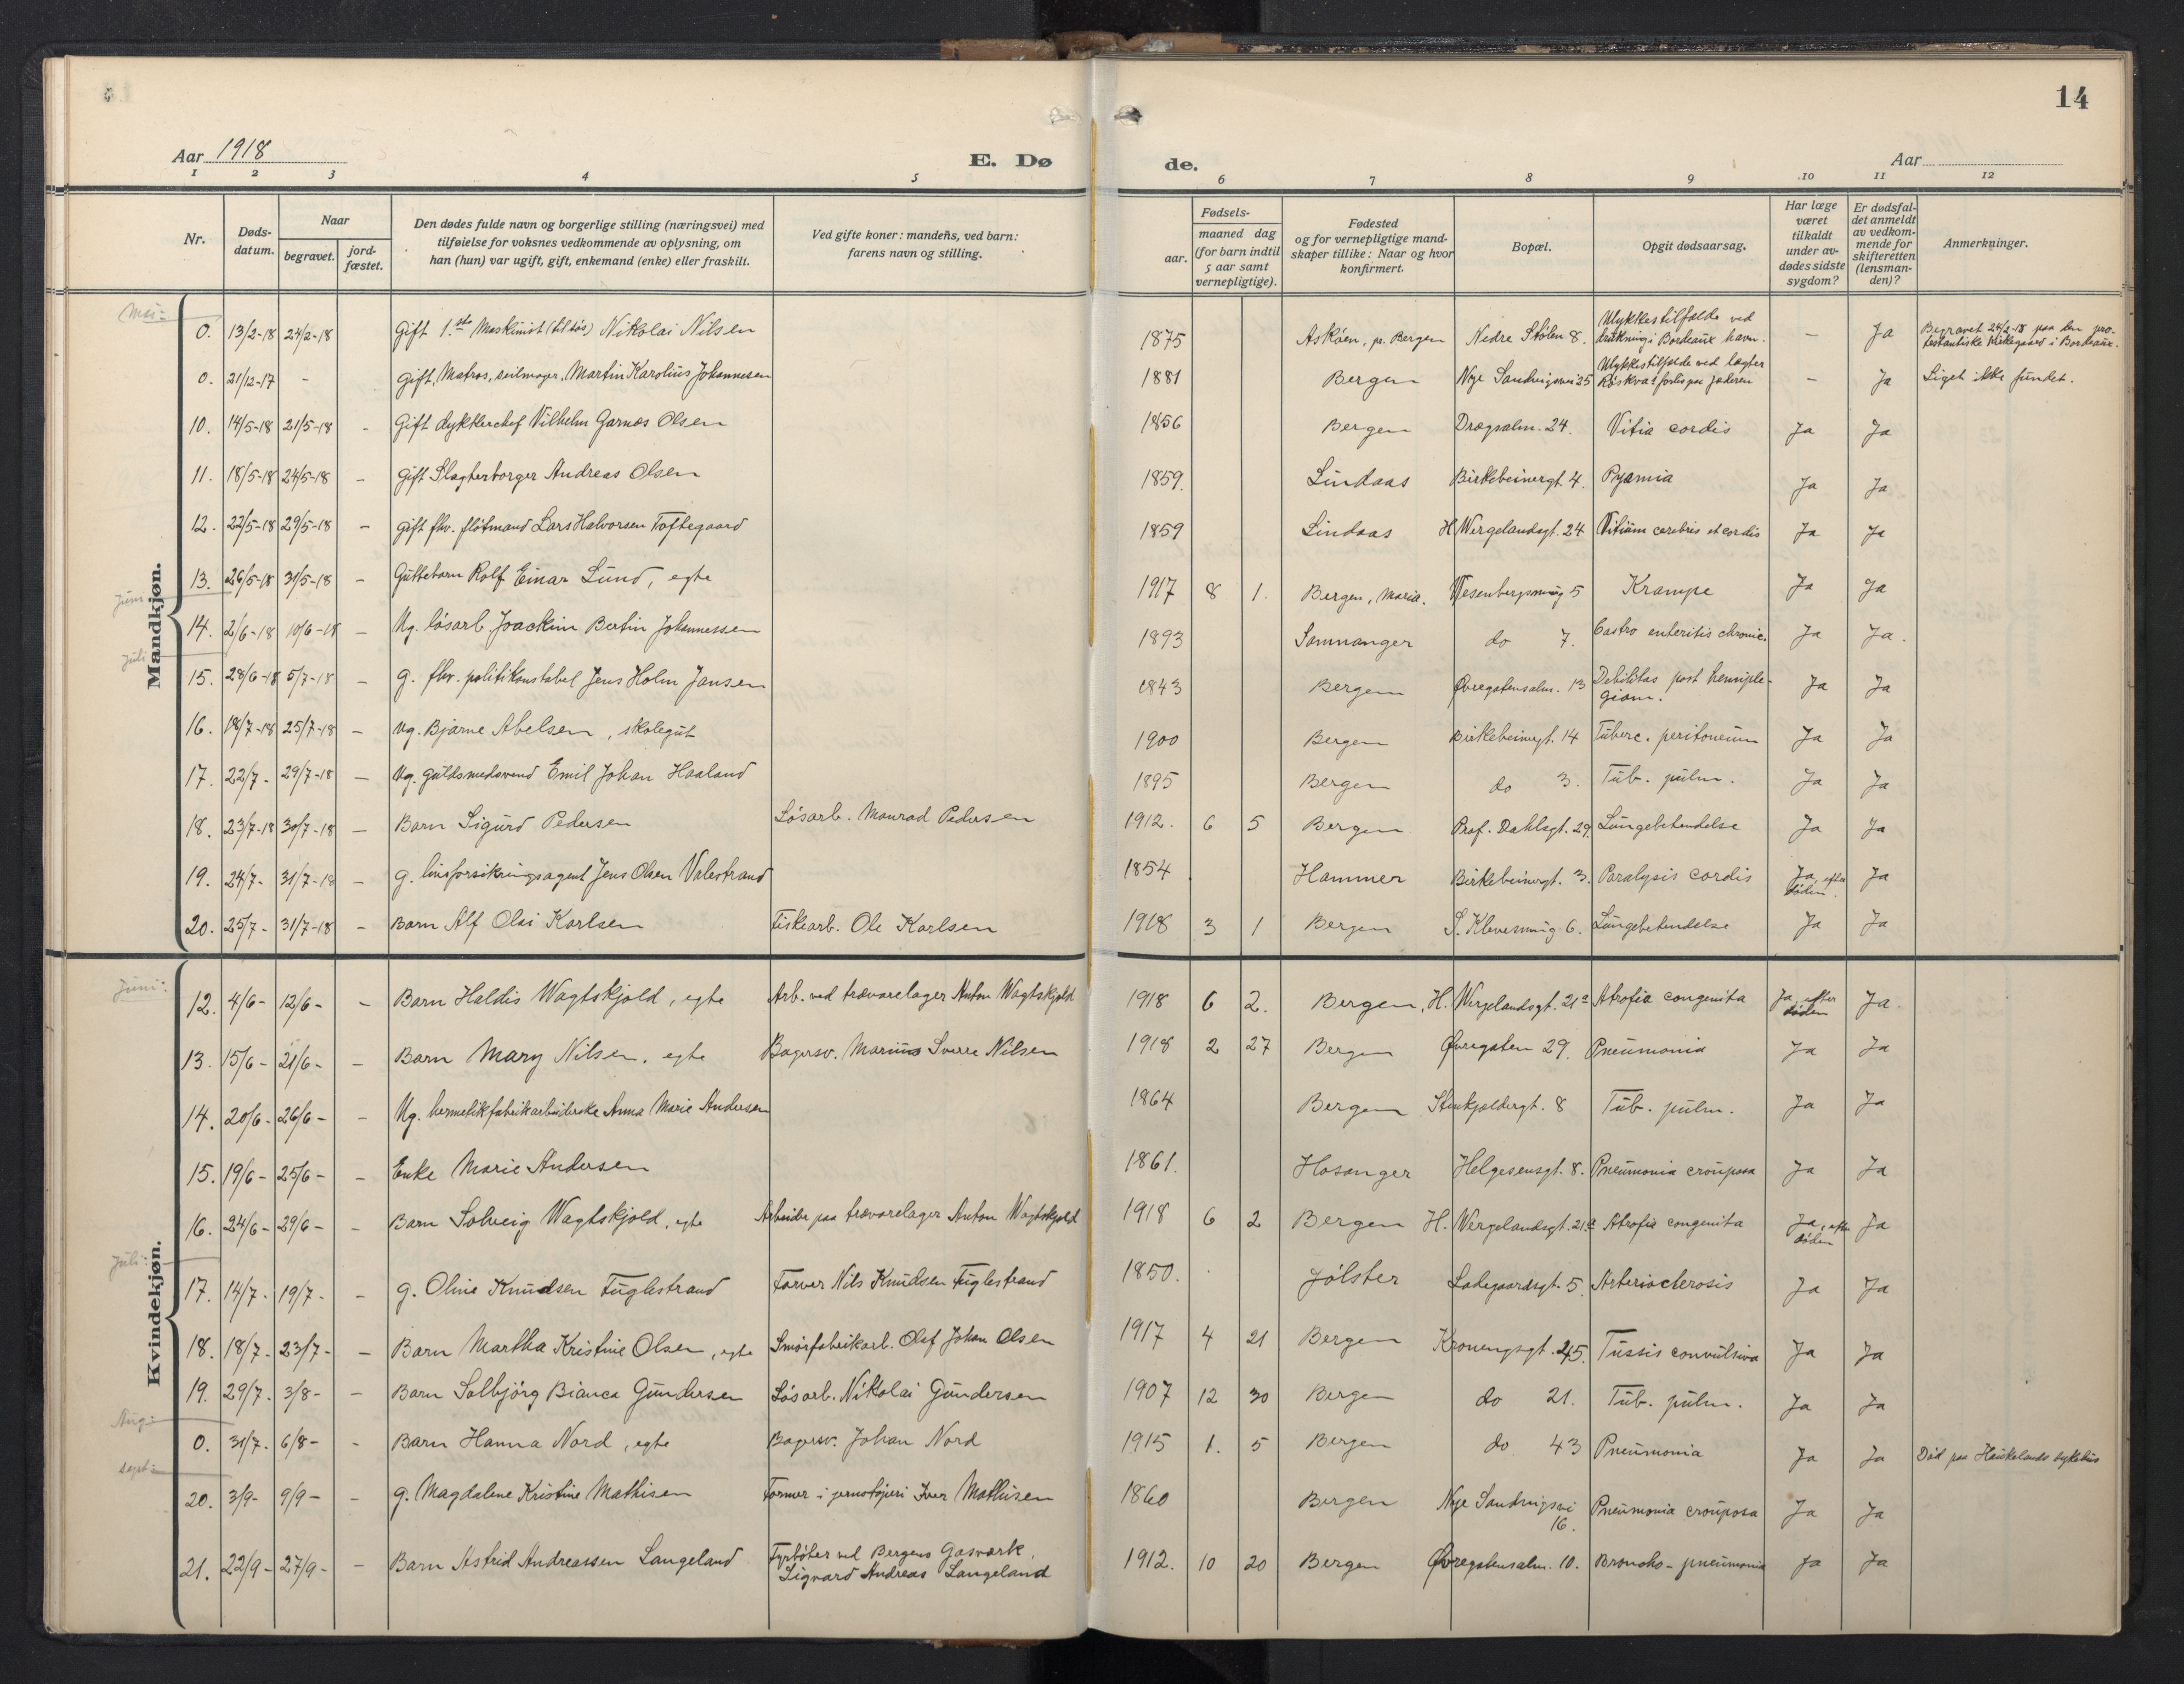 14
Aar 1918
E. Dø
de.
Aar
1 2 3 4 5 6 7 8 9 10 11 12
Nr.
Døds-
datum.
Naar
begravet.
jord-
fæstet.
Den dødes fulde navn og borgerlige stilling (næringsvei) med
tilføielse for voksnes vedkommende av oplysning, om
han (hun) var ugift, gift, enkemand (enke) eller fraskilt.
Ved gifte koner: mandens, ved barn:
farens navn og stilling.
Fødsels-
aar.
maaned dag
(for barn indtil
5 aar samt
vernepligtige).
Fødested
og for vernepligtige mand-
skaper tillike: Naar og hvor
konfirmert.
Bopæl.
Opgit dødsaarsag.
Har læge
været
tilkaldt
under av-
dødes sidste
sygdom?
Er dødsfal-
det anmeldt
av vedkom-
mende for
skifteretten
(lensman-
den)?
Anmerkninger.
Mandkjøn.
Mai:
0. 13/2-18 24/2-18 Gift 1.ste Maskinist (tilsøs) Nikolai Nilsen 1875 Askøen, pr. Bergen Nedre Stølen 8. Ulykkestilfælde ved drukning i Bordeaux havn. – Ja Begravet 24/2-18 paa den pro-
testantiske kirkegaard i Bordeaux.
0. 21/12-17 - Gift, Matros, seilmager, Martin Karolius Johannesen 1881 Bergen Nye Sandvigsvei 25 Ulykkestilfælde ved lægter Røskva's forlis paa Jæderen – Ja Liget ikke fundet.
10. 14/5-18 21/5-18 - Gift dykkerchef Vilhelm Garnæs Olsen 1856 Bergen Drægsalm. 24. Vitia cordis Ja Ja
11. 18/5-18 24/5-18 - Gift Slagterborger Andreas Olsen 1859. Lindaas Birkebeinergt. 4. Pyæmia Ja Ja
12. 22/5-18 29/5-18 - Gift fhv. flötmand Lars Halvorsen Toftegaard 1859 Lindaas H. Wergelandsgt. 24 Vitium cerebris et cordis Ja Ja
13. 26/5-18 31/5-18 - Guttebarn Rolf Einar Lund, egte 1917 8 1. Bergen, Maria. Wesenbergsmug 5 Krampe Ja Ja
Juni
14. 2/6-18 10/6-18 - Ug. løsarb. Joackim Bertin Johannessen 1893 Samnanger do 7. Gastro enteritis chronic. Ja Ja.
Juli
15. 28/6-18 5/7-18 - g. fhv. politikonstabel Jens Holm Jansen 1843 Bergen Øvregatensalm. 13 Debilitas post hemiple-
giam. Ja Ja
16. 18/7-18 25/7-18 - Ug. Bjarne Abelsen, skolegut 1900 Bergen Birkebeinergt. 14 Tuberc. peritoneum Ja Ja
17. 22/7- 29/7-18 - Ug. guldsmedsvend Emil Johan Haaland 1895 Bergen do 3. Tub. pulm. Ja Ja
18. 23/7-18 30/7-18 - Barn Sigurd Pedersen Løsarb. Monrad Pedersen 1912. 6 5 Bergen Prof. Dahlsgt. 29. Lungebetendelse Ja Ja
19. 24/7- 31/7-18 - g. livsforsikringsagent Jens Olsen Valestrand 1854 Hammer Birkebeinergt. 3. Paralysis cordis Ja, efter døden. Ja
20. 25/7- 31/7-18 - Barn Alf Olai Karlsen Fiskearb. Ole Karlsen 1918 3 1 Bergen S. Klevesmug 6. Lungebetendelse Ja Ja
Kvindekjøn.
Juni:
12. 4/6- 12/6- - Barn Haldis Wagtskjold, egte Arb. ved trævarelager Anton Wagtskjold 1918 6 2. Bergen, H. Wergelandsgt. 21a Atrofia congenita Ja, efter døden Ja.
13. 15/6- 21/6- - Barn Mary Nilsen, egte Bagersv. Marius Sverre Nilsen 1918 2 27 Bergen Øvregaten 29. Pneumonia Ja Ja
14. 20/6- 26/6- - Ug. hermetikfabrikarbeiderske Anna Marie Andersen 1864 Bergen Stenkjældergt. 8 Tub. pulm. Ja Ja
15. 19/6- 25/6- - Enke Marie Andersen 1861. Hosanger Helgesensgt. 8. Pneumonia crouposa Ja Ja
16. 24/6- 29/6- - Barn Solveig Wagtskjold, egte Arbeider paa trævarelager Anton Wagtskjold 1918 6 2 Bergen H. Wergelandsgt. 21a Atrofia congenita Ja, efter døden Ja
Juli:
17. 14/7. 19/7- - g. Oline Knudsen Fuglestrand Farver Nils Knudsen Fuglestrand 1850. Jølster Ladegaardsgt. 5. Arterioclerosis Ja Ja
18. 18/7. 23/7- - Barn Martha Kristine Olsen, egte Smørfabrikarb. Olaf Johan Olsen 1917 4 21 Bergen Kronengsgt. 45. Tussis convulsiva Ja Ja
19. 29/7. 3/8- - Barn Solbjørg Bianca Gundersen Løsarb. Nikolai Gundersen 1907 12 30 Bergen do 21. Tub. pulm. Ja Ja
Aug:
0. 31/7. 6/8- - Barn Hanna Nord, egte Bagersv. Johan Nord 1915 1. 5 Bergen do 43 Pneumonia Ja Ja Død paa Haukelands sykehus
sept:
20. 3/9- 9/9- - g. Magdalene Kristine Mathisen Former i jernstøperi Iver Mathisen 1860 Bergen Nye Sandvigsvei 16. Pneumonia crouposa Ja Ja
21. 22/9- 27/9- - Barn Astrid Andreassen Langeland Fyrbøter ved Bergens Gasværk,
Sigvard Andreas Langeland 1912. 10 20 Bergen Øvregatensalm. 10. Broncho-pneumonia Ja Ja